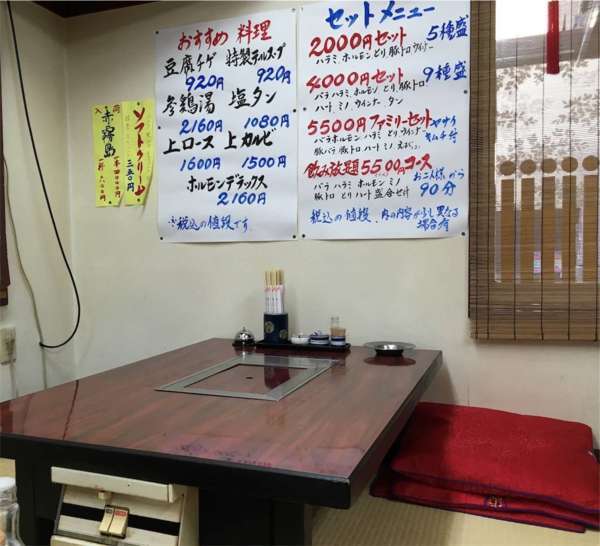 おすすめ 料理
豆腐チゲ 特製テルスープ
920円 920円
参鶏湯 塩タン
2160円 1080円
上ロース 上カルビ
1600円 1500円
ホルモンデラックス
2160円
※税込の値段です
セットメニュー
2000円セット 5種盛
ハラミ ホルモン とり 豚トロ ウインナー
4000円セット 9種盛
バラ ハラミ ホルモン とり 豚トロ
ハート ミノ ウインナー タン
5500円 ファミリーセット ヤサイ
バラ ホルモン ハラミ とり ウインナー キムチ付
豚バラ 豚トロ ハート ミノ
飲み放題 5500円コース
バラ ハラミ ホルモン ミノ お二人様から
豚トロ とり ハート 盛合せ付 90分
税込の値段、内の内容が少し異なる
場合有
入荷
赤霧島
ソフトクリーム
三五〇円